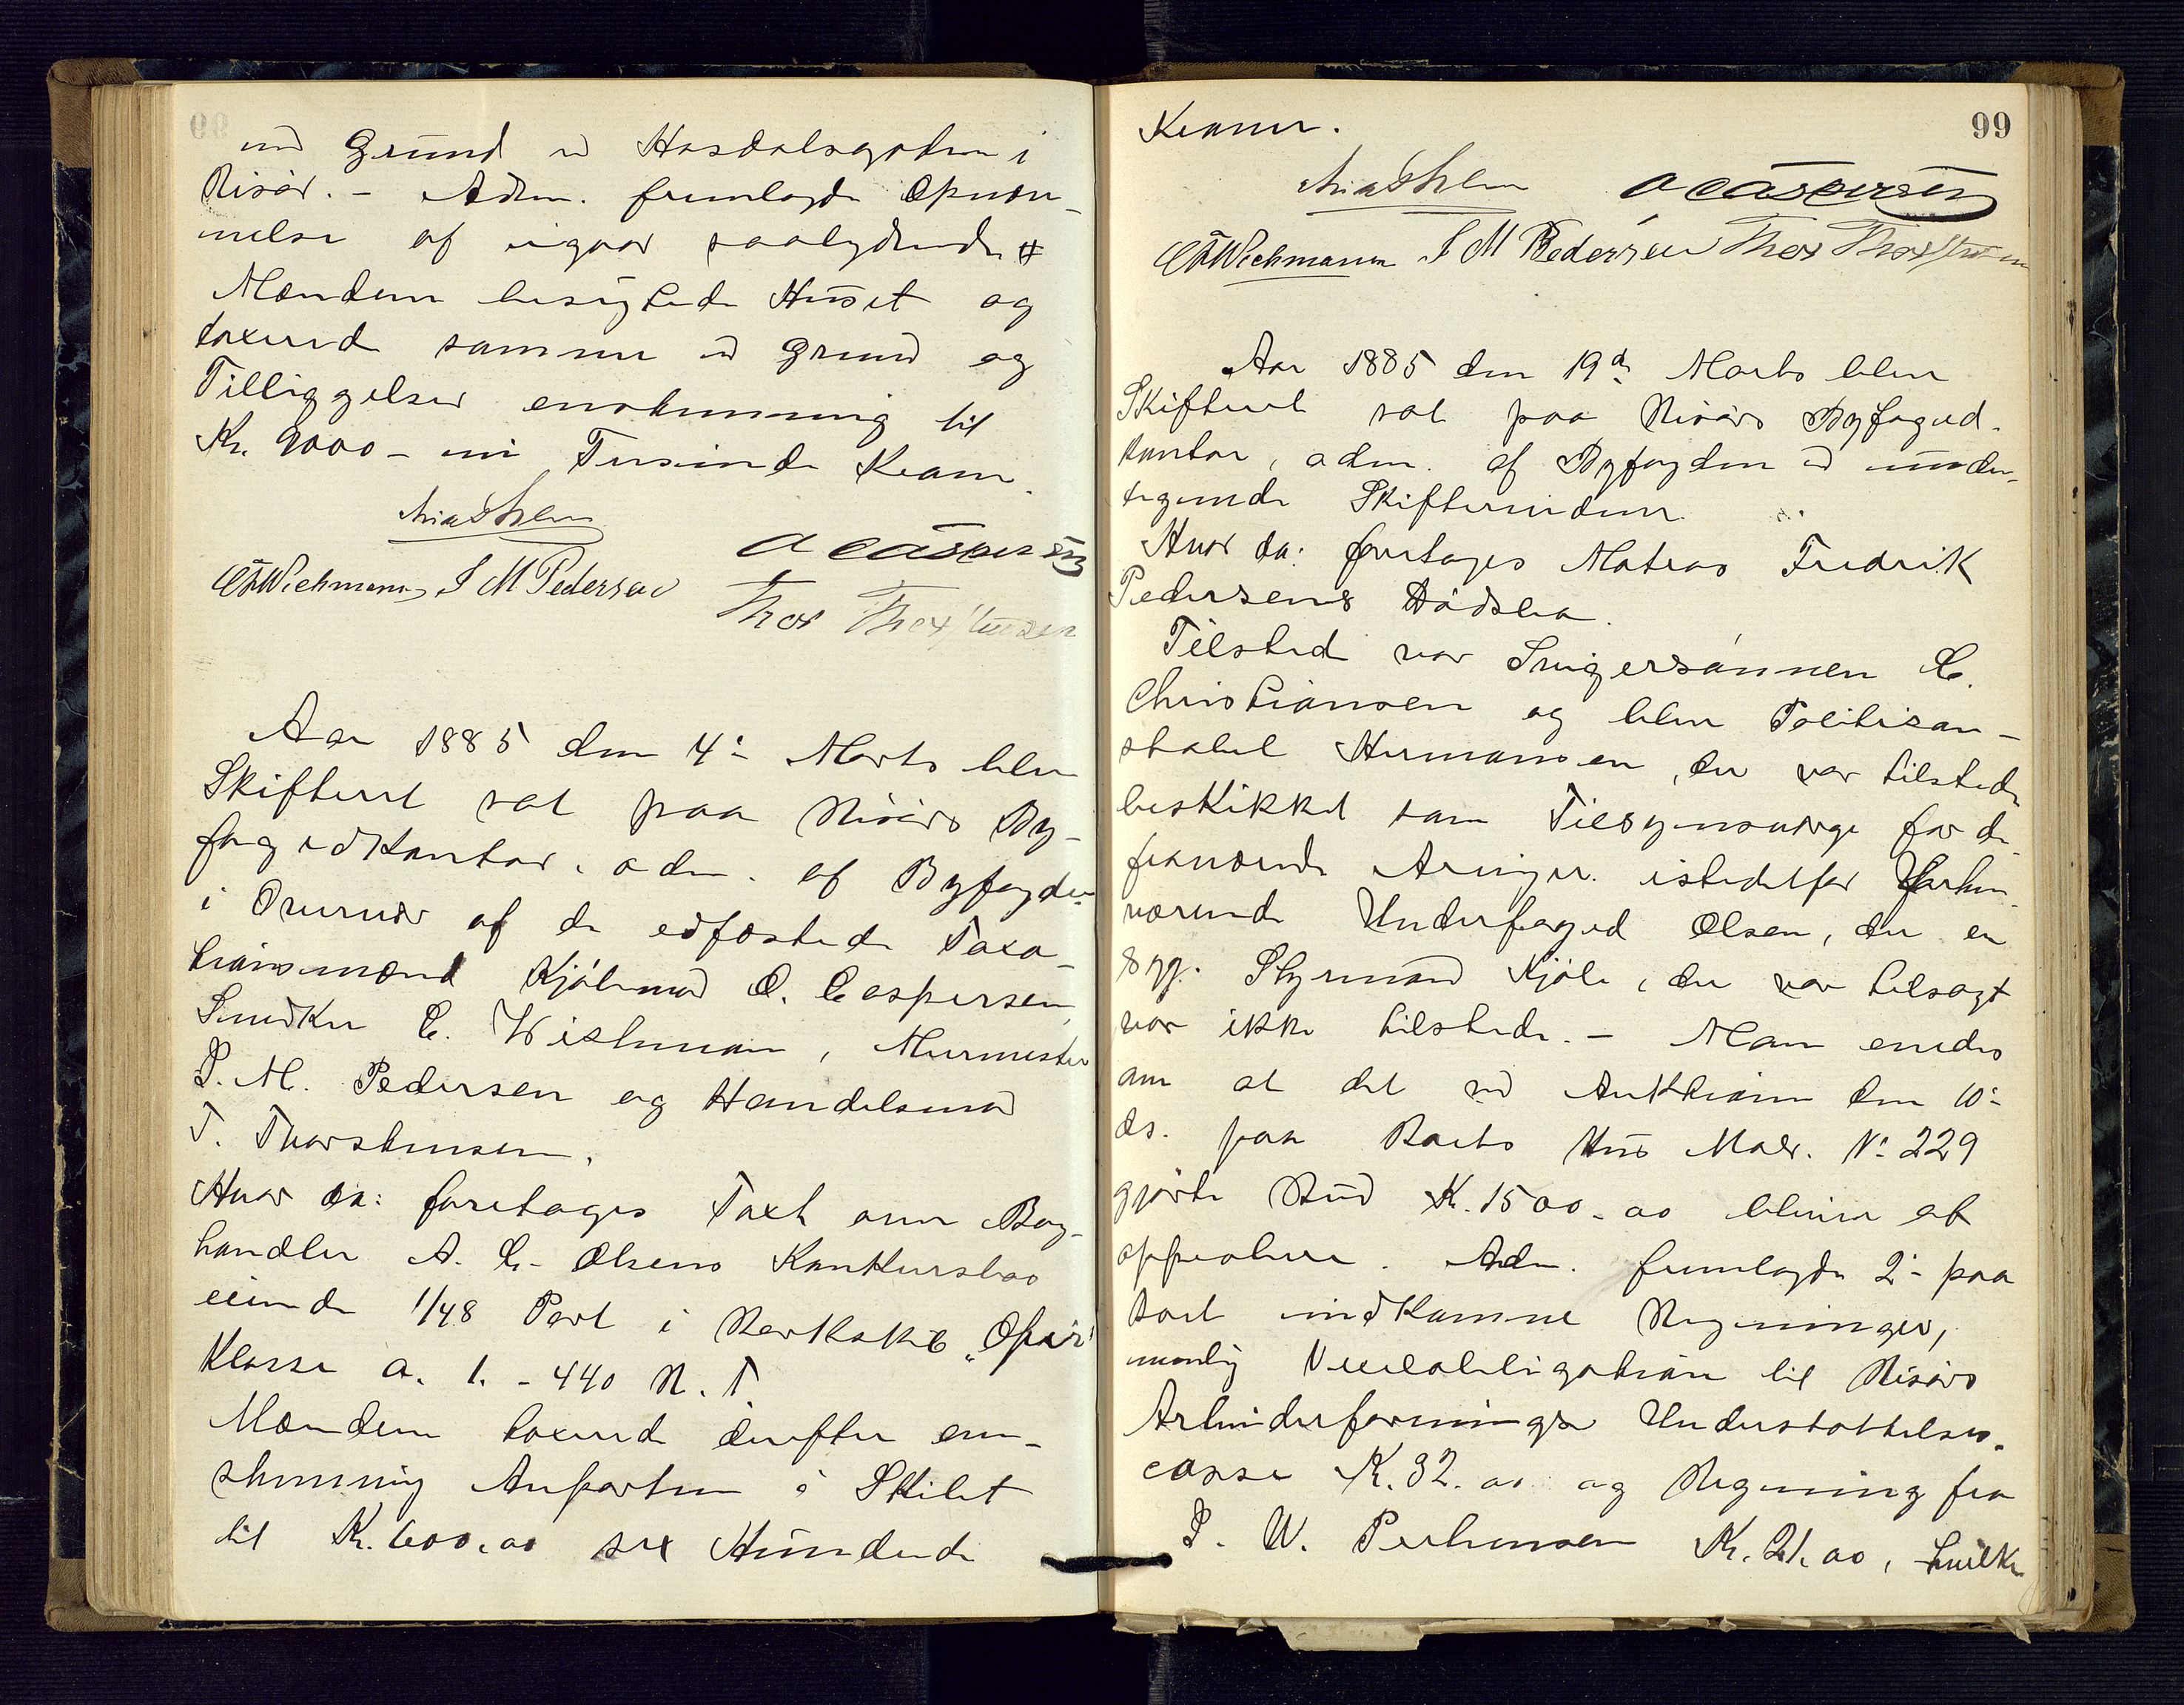 med Grund ved Hasdalsgaden i
Risør. – Adm. fremlagde Opnæv-
nelse af igaar saalydende #
Mændene besigtede Huset og
taxered samme ved Grund og
Tilliggelser enstemmig til
Kr. 9000 – ni Tusinde Kroner.
A Caspersen
C A Wichmann S M Pedersen
Thor Thorstensen
Aar 1885 den 4de Marts blev
Skifteret sat paa Risørs By-
fogedkontor, adm. af Byfogden
i Overvær af de edfæstede Taxa-
tionsmænd Kjøbmand O. Caspersen,
Snedker C. Wishman, Murmester
S. M. Pedersen og Handelsmand
T. Thorstensen.
Hvor da: foretages Taxt over Bog-
handler A. C. Olsens Konkursbos
eiende 1/48 Part i Barkskib „Ophir"
Klasse A. 1. – 440 R. T.
Mændene taxered derefter en-
stemmig Anparten i Skibet
til Kr. 600.00 sex Hundrede
99
Kroner.
A Caspersen
C A Wichmann S M Pedersen Thor Thorstensen
Aar 1885 den 19de Marts blev
Skifteret sat paa Risørs Byfoged-
kontor, adm. af Byfogden ved under-
tegnede Skiftevidner
Hvor da: foretages Matros Fredrik
Pedersens Dødsbo.
Tilsted var Svigersønnen C.
Christiansen og blev Politikon-
stabel Hermansen, der var tilstede
beskikket som Tilsynsværge for de
fraværende Arvinger istedetfor Forhen-
værende Underfoged Olsen, der er
syg. Styrmand Kjøle, der var tilsagt
var ikke tilstede. – Man enedes
om at det ved Auktion den 10de
ds. paa Boets Hus Matr. No 229
gjorte Bud Kr. 1500.00 bliver at
approbere. Adm. fremlagde 2de paa
Boet indkomne Regninger,
nemlig Vexelobligation til Risørs
Arbeiderforenings Understøttelses-
casse Kr. 32.00 og Regning fra
S. W. Kr. 21.00, hvilke